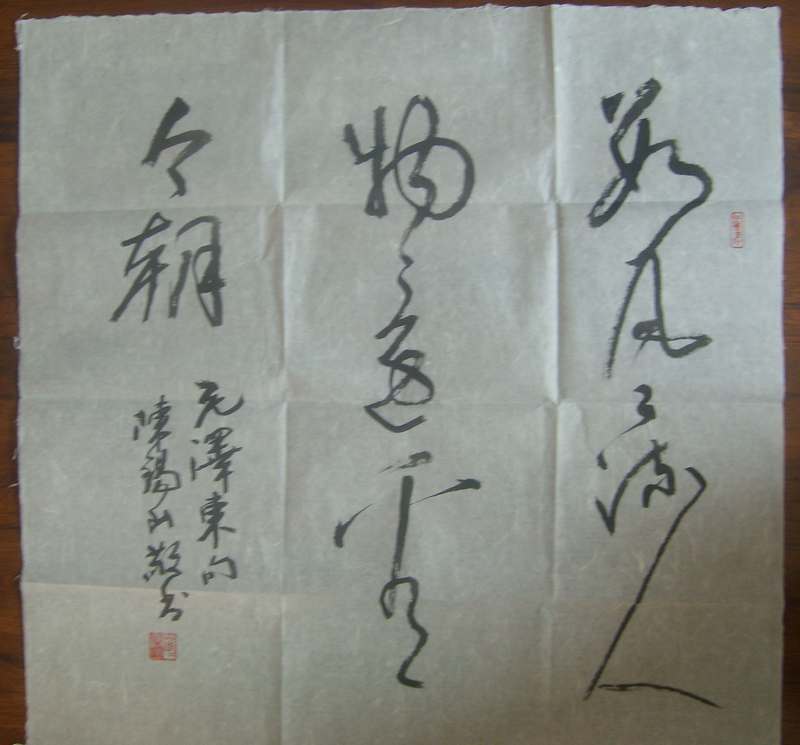 数风流人
物還看
今朝
毛澤東句
陳錫山敬书